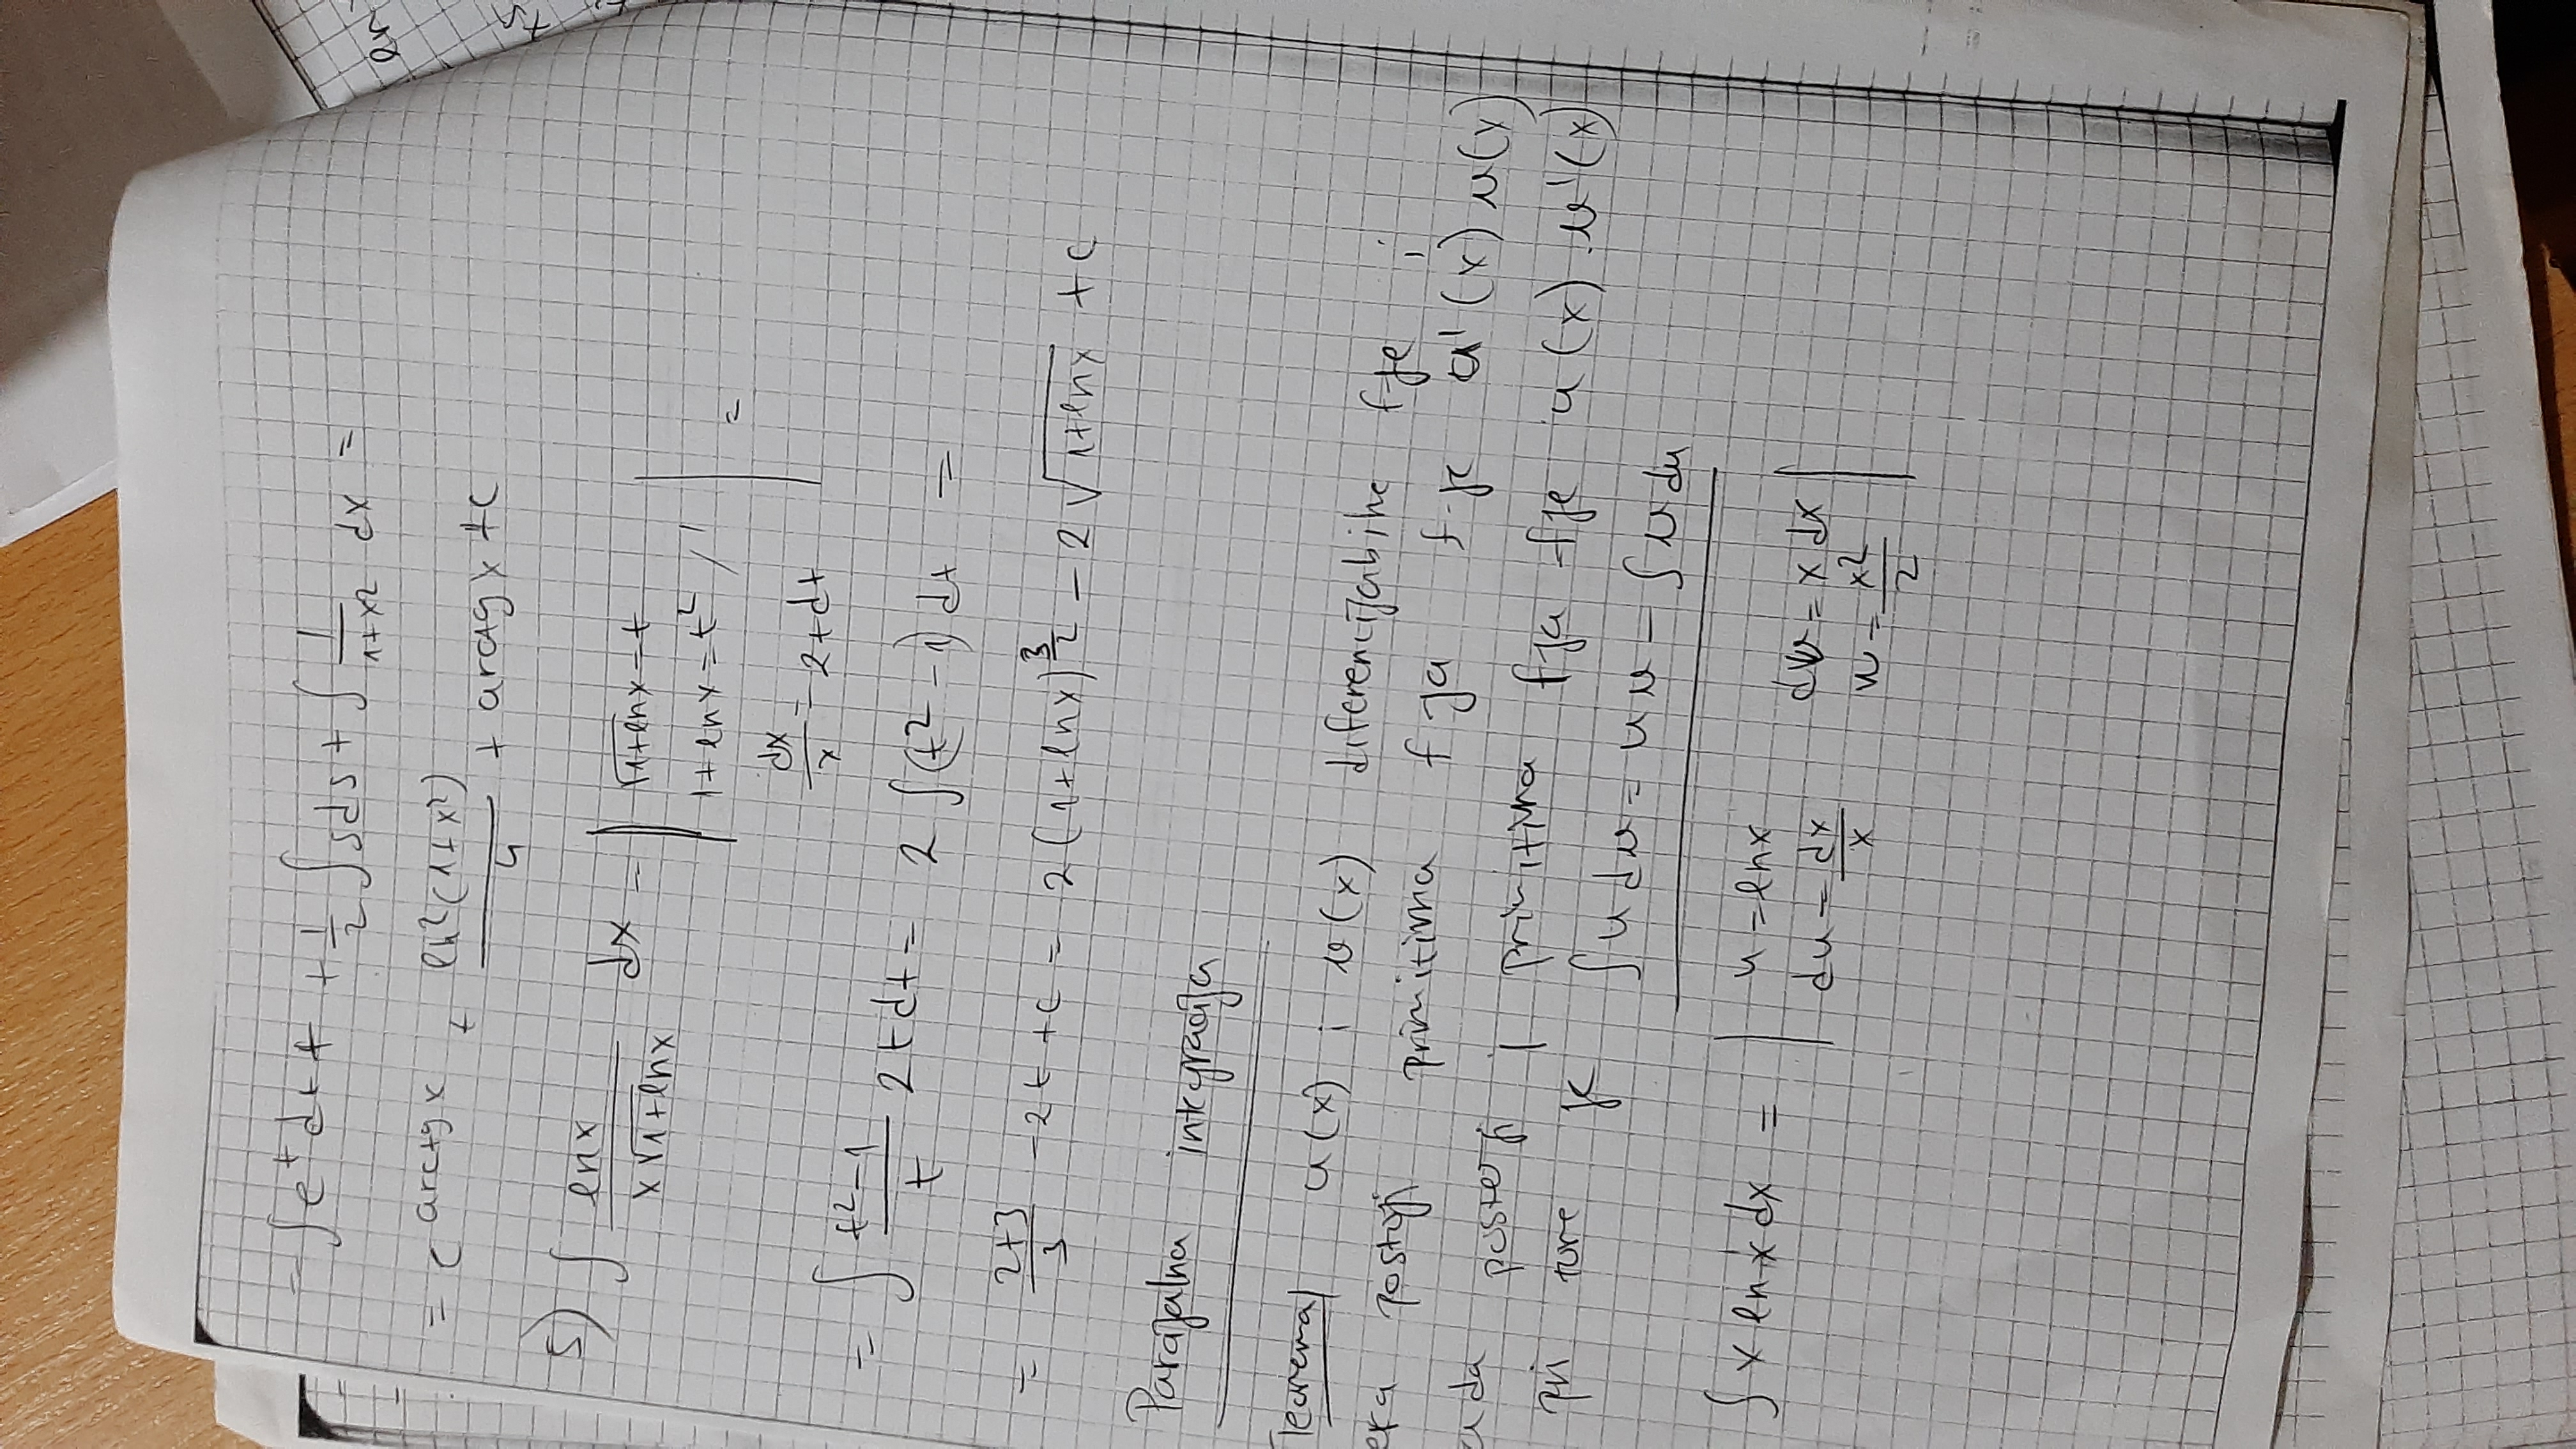 = ∫e^t dt + 1/2 ∫sds + ∫ 1/(1+x2) dx =
= e^(arctg x) + ln²(1+x²)/4 + arctg x + c
5) ∫ lnx/(x√(1+lnx)) dx = | √(1+lnx) = t
1+lnx = t² /'
dx/x = 2tdt | =
= ∫ (t²-1)/t 2tdt = 2 ∫(t²-1)dt =
= 2t3/3 - 2t + c = 2(1+lnx)^(3/2) - 2√(1+lnx) + c
Parcijalna integracija
Teorema| u(x) i v(x) diferencijabilne fje i
eka postoji primitivna fja f-je u'(x)v(x)
ada postoji i primitivna fja fje u(x)v'(x)
pri tome je ∫udv = uv - ∫vdu
∫x lnx dx = | u = lnx dv = x dx
du = dx/x v = x2/2 |
ln